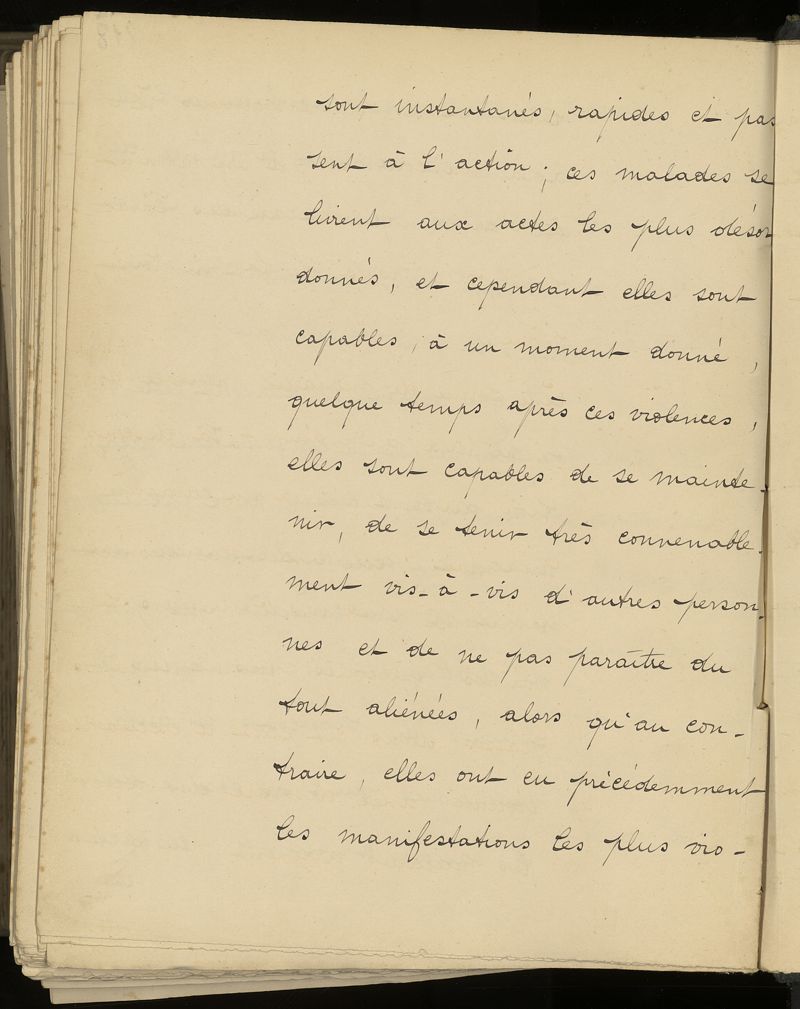 sont instantanés, rapides et pas
sent à l'action ; ces malades se
livrent aux actes les plus désor
donnés, et cependant elles sont
capables, à un moment donné,
quelque temps après ces violences,
elles sont capables de se mainte-
nir, de se tenir très convenable-
ment vis-à-vis d'autres person-
nes et de ne pas paraître du
tout aliénées, alors qu'au con-
traire, elles ont eu précédemment
les manifestations les plus vio-